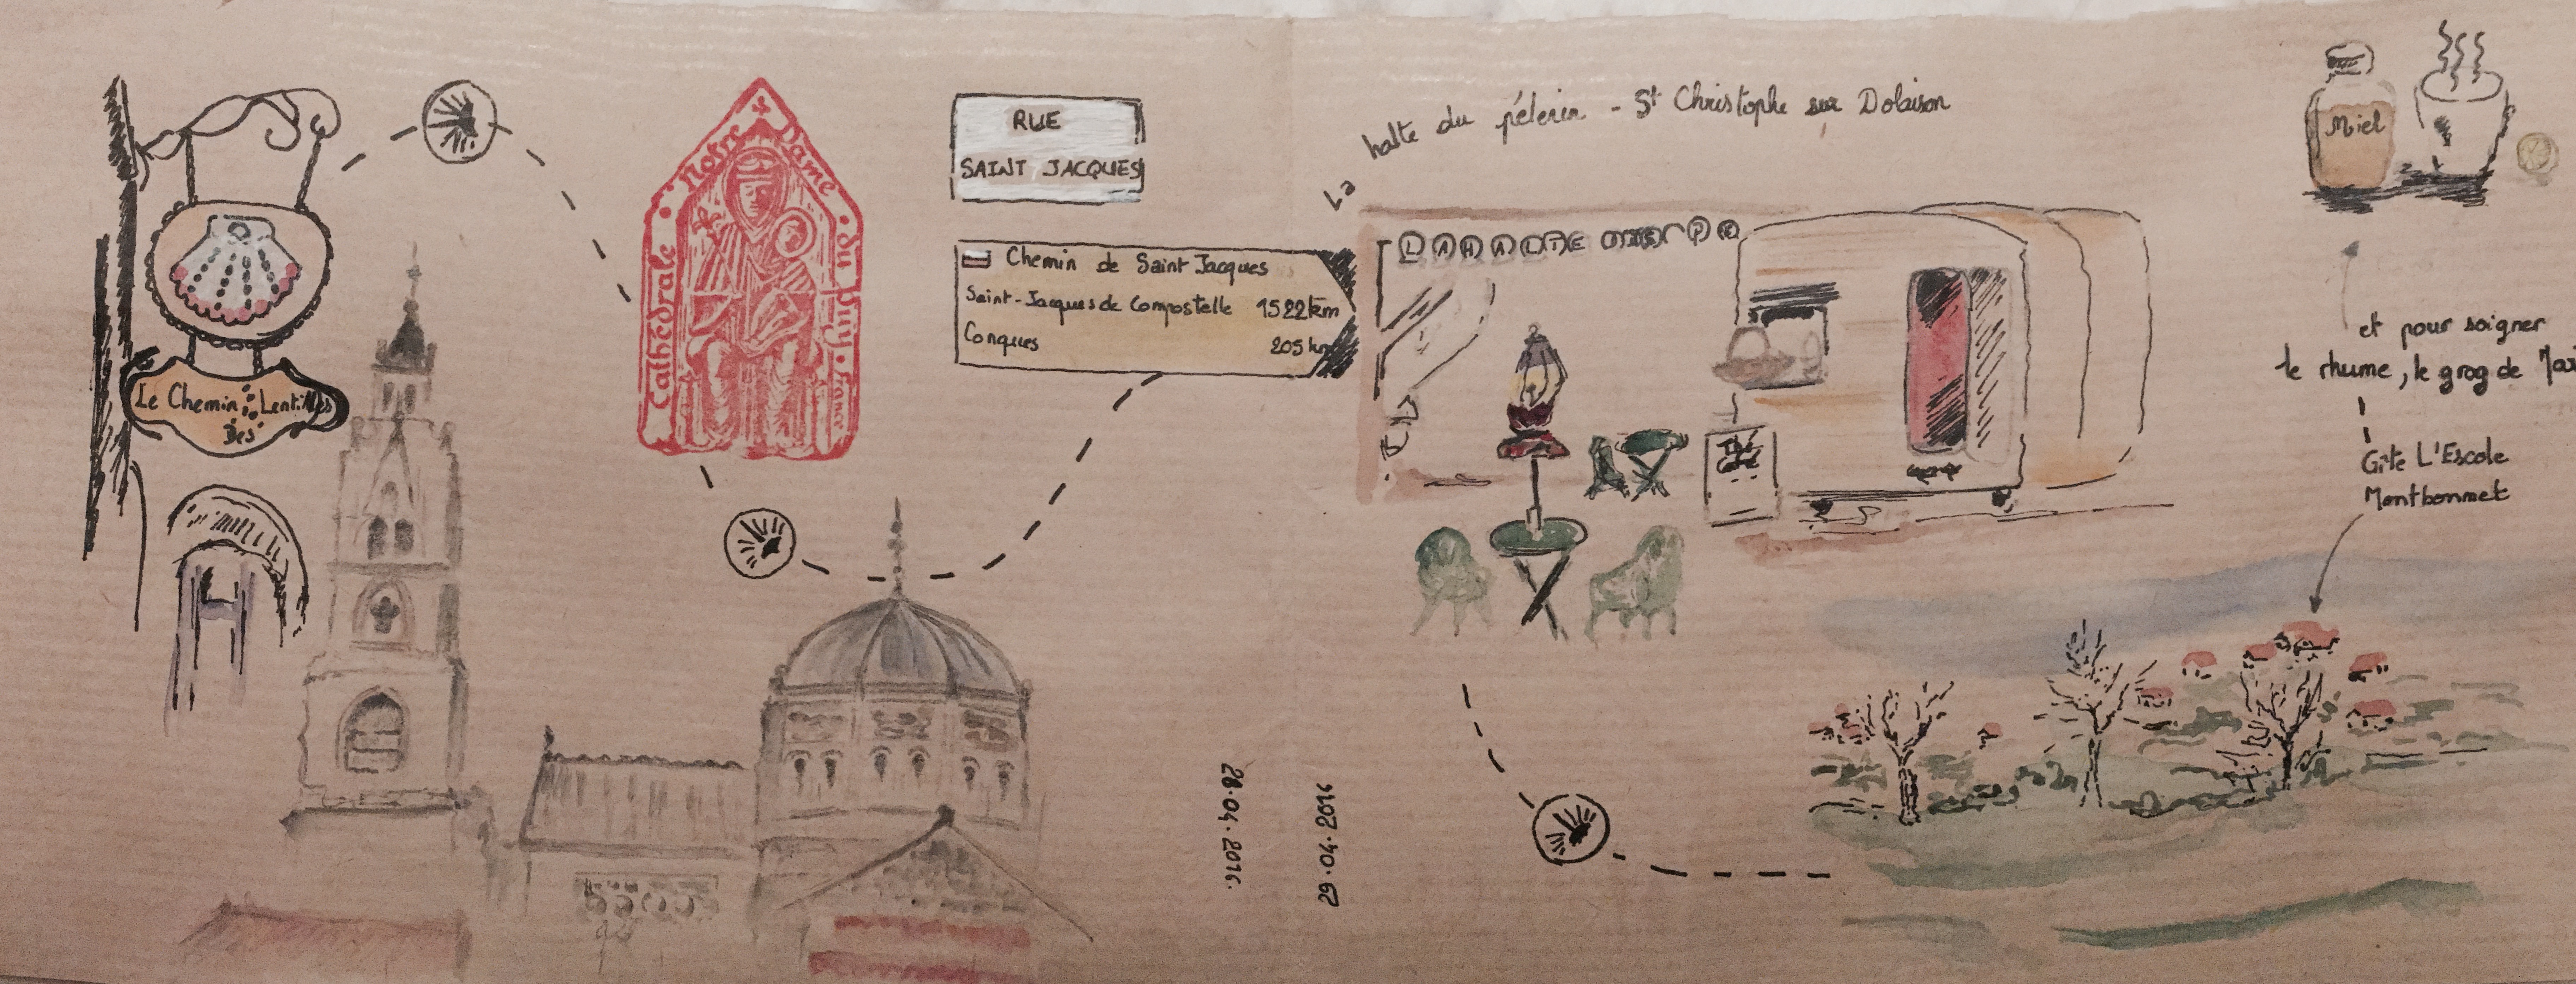 Le Chemin Des Lentilles
Cathédrale Notre Dame du Puy France
RUE
SAINT JACQUES
Chemin de Saint Jacques
Saint-Jacques de Compostelle 1522 km
Conques 205 km
28.04.2016.
29.04.2016
La halte du pélerin - St Christophe sur Dolaison
LA HALTE
Thé
Café
Miel
et pour soigner
le rhume, le grog de
Gîte L'Escole
Montbonnet